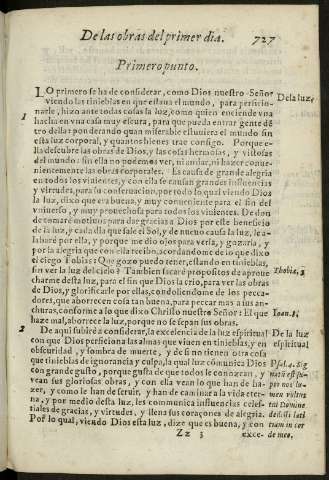 De las obras del primer dia. 727
Primero punto.
LO primero se ha de considerar, como Dios nuestro Señor
viendo las tinieblas en que estaua el mundo, para perficio-
narle, hizo ante todas cosas la luz, como quien enciende vna
hacha en vna casa muy escura, para que pueda entrar gente dẽ
tro della: ponderando quan miserable estuuiera el mundo sin
esta luz corporal, y quantos bienes trae consigo. Porque e-
lla descubre las obras de Dios, y las cosas hermosas, y vistosas
del mundo: sin ella no podemos ver, ni andar, ni hazer conue-
nientemente las obras corporales. Es causa de grande alegria
en todos los viuientes, y con ella se causan grandes influencias
y virtudes, para su conseruacion, por todo lo qual viendo Dios
la luz, dixo que era buena, y muy conueniente para el fin del
vniuerso, y muy prouechosa para todos los viuientes. De don
de tomarè motiuos para dar gracias a Dios por este beneficio
de la luz, y cada dia que sale el Sol, y de nueuo causa la luz, le a-
labarè por ella, y porque me dio ojos para verla, y gozarla, y
por la alegria que con ella recibo, acordandome de lo que dixo
el ciego Tobias: Que gozo puedo tener, estando en tinieblas,
sin ver la luz del cielo? Tambien sacarè propositos de aproue
charme desta luz, para el fin que Dios la crio, para ver las obras
de Dios, y glorificarle por ellas, condoliendome de los pecca-
dores, que aborrecen cosa tan buena, para peccar mas a sus an-
churas, conforme a lo que dixo Christo nuestro Señor: El que
haze mal, aborrece la luz, porque no se sepan sus obras.
De aqui subirè a considerar, la excelencia de la luz espiritual
con que Dios perficiona las almas que viuen en tinieblas, y en
obscuridad, y sombra de muerte, y de si no tienen otra cosa
que tinieblas de ignorancia y culpa, la qual luz comunica Dios
con grande gusto, porque gusta de que todos le conozcan, y
vean sus gloriosas obras, y con ella vean lo que han de ha-
zer, y como le han de seruir, y han de caminar a la vida eter-
na, y por medio desta luz, les communica influencias celes-
tiales de gracias, y virtudes, y llena sus coraçones de alegria.
Por lo qual, viendo Dios esta luz, dize que es buena, y con
Zz 3 exce-
1
2
De la luz.
Thobia. 5
Ioan. 3
De la luz
espiritual
Psal. 4. sig
natũ est su-
per nos lu-
men vultus
tui Domine
dedisti læti
tiam in cor
de meo.